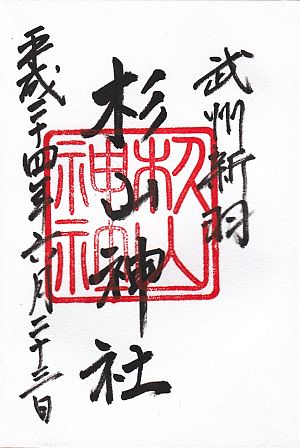 武州新羽
杉山神社
平成二十四年六月二十三日
杉山
神社